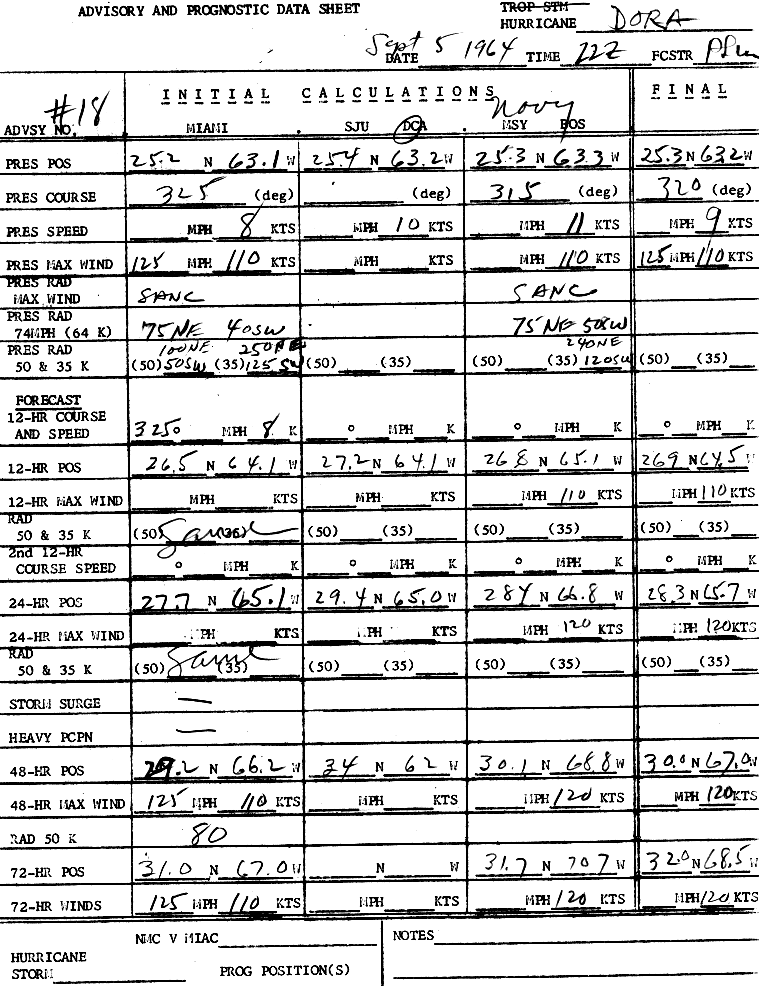 ADVISORY AND PROGNOSTIC DATA SHEET
TROP STM
HURRICANE DORA
DATE Sept 5 1964 TIME 22Z FCSTR
#18 INITIAL CALCULATIONS FINAL
Navy
ADVSY NO. MIAMI SJU DCA MSY BOS
PRES POS 25.2 N 63.1 W 25.4 N 63.2 W 25.3 N 63.3 W 25.3 N 632 W
PRES COURSE 325 (deg) (deg) 315 (deg) 320 (deg)
PRES SPEED MPH 8 KTS MPH 10 KTS MPH 11 KTS MPH 9 KTS
PRES MAX WIND 125 MPH 110 KTS MPH KTS MPH 110 KTS 125 MPH 110 KTS
PRES RAD
MAX WIND SANC SANC
PRES RAD
74MPH (64 K) 75 NE 40SW 75 NE 50SW
PRES RAD 100NE 250NE 240NE
50 & 35 K (50) 50SW (35) 125 SW (50) (35) (50) (35) 120SW (50) (35)
FORECAST
12-HR COURSE
AND SPEED 325° MPH 8 K ° MPH K ° MPH K ° MPH K
12-HR POS 26.5 N 64.1 W 27.2 N 64.1 W 26.8 N 65.1 W 269 N 64.5 W
12-HR MAX WIND MPH KTS MPH KTS MPH 110 KTS MPH 110 KTS
RAD
50 & 35 K (50) Same (35) (50) (35) (50) (35) (50) (35)
2nd 12-HR
COURSE SPEED ° MPH K ° MPH K ° MPH K ° MPH K
24-HR POS 27.7 N 65.1 W 29.4 N 65.0 W 284 N 66.8 W 28.3 N 65.7 W
24-HR MAX WIND MPH KTS MPH KTS MPH 120 KTS MPH 120 KTS
RAD
50 & 35 K (50) Same (35) (50) (35) (50) (35) (50) (35)
STORM SURGE —
HEAVY PCPN —
48-HR POS 29.2 N 66.2 W 34 N 62 W 30.1 N 68.8 W 30.0 N 67.0 W
48-HR MAX WIND 125 MPH 110 KTS MPH KTS MPH 120 KTS MPH 120 KTS
RAD 50 K 80
72-HR POS 31.0 N 67.0 W N W 31.7 N 707 W 320 N 68.5 W
72-HR WINDS 125 MPH 110 KTS MPH KTS MPH 120 KTS MPH 120 KTS
NMC V MIAC NOTES
HURRICANE
STORM PROG POSITION(S)